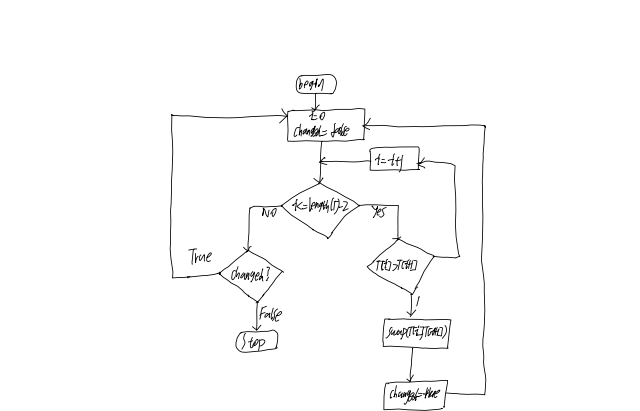 begin
t=0
changed=false
t=t+1
t<=length(T)-2
NO
Yes
True
changed?
T[t]>T[t+1]
False
Stop
swap(T[t],T[t+1])
changed=true